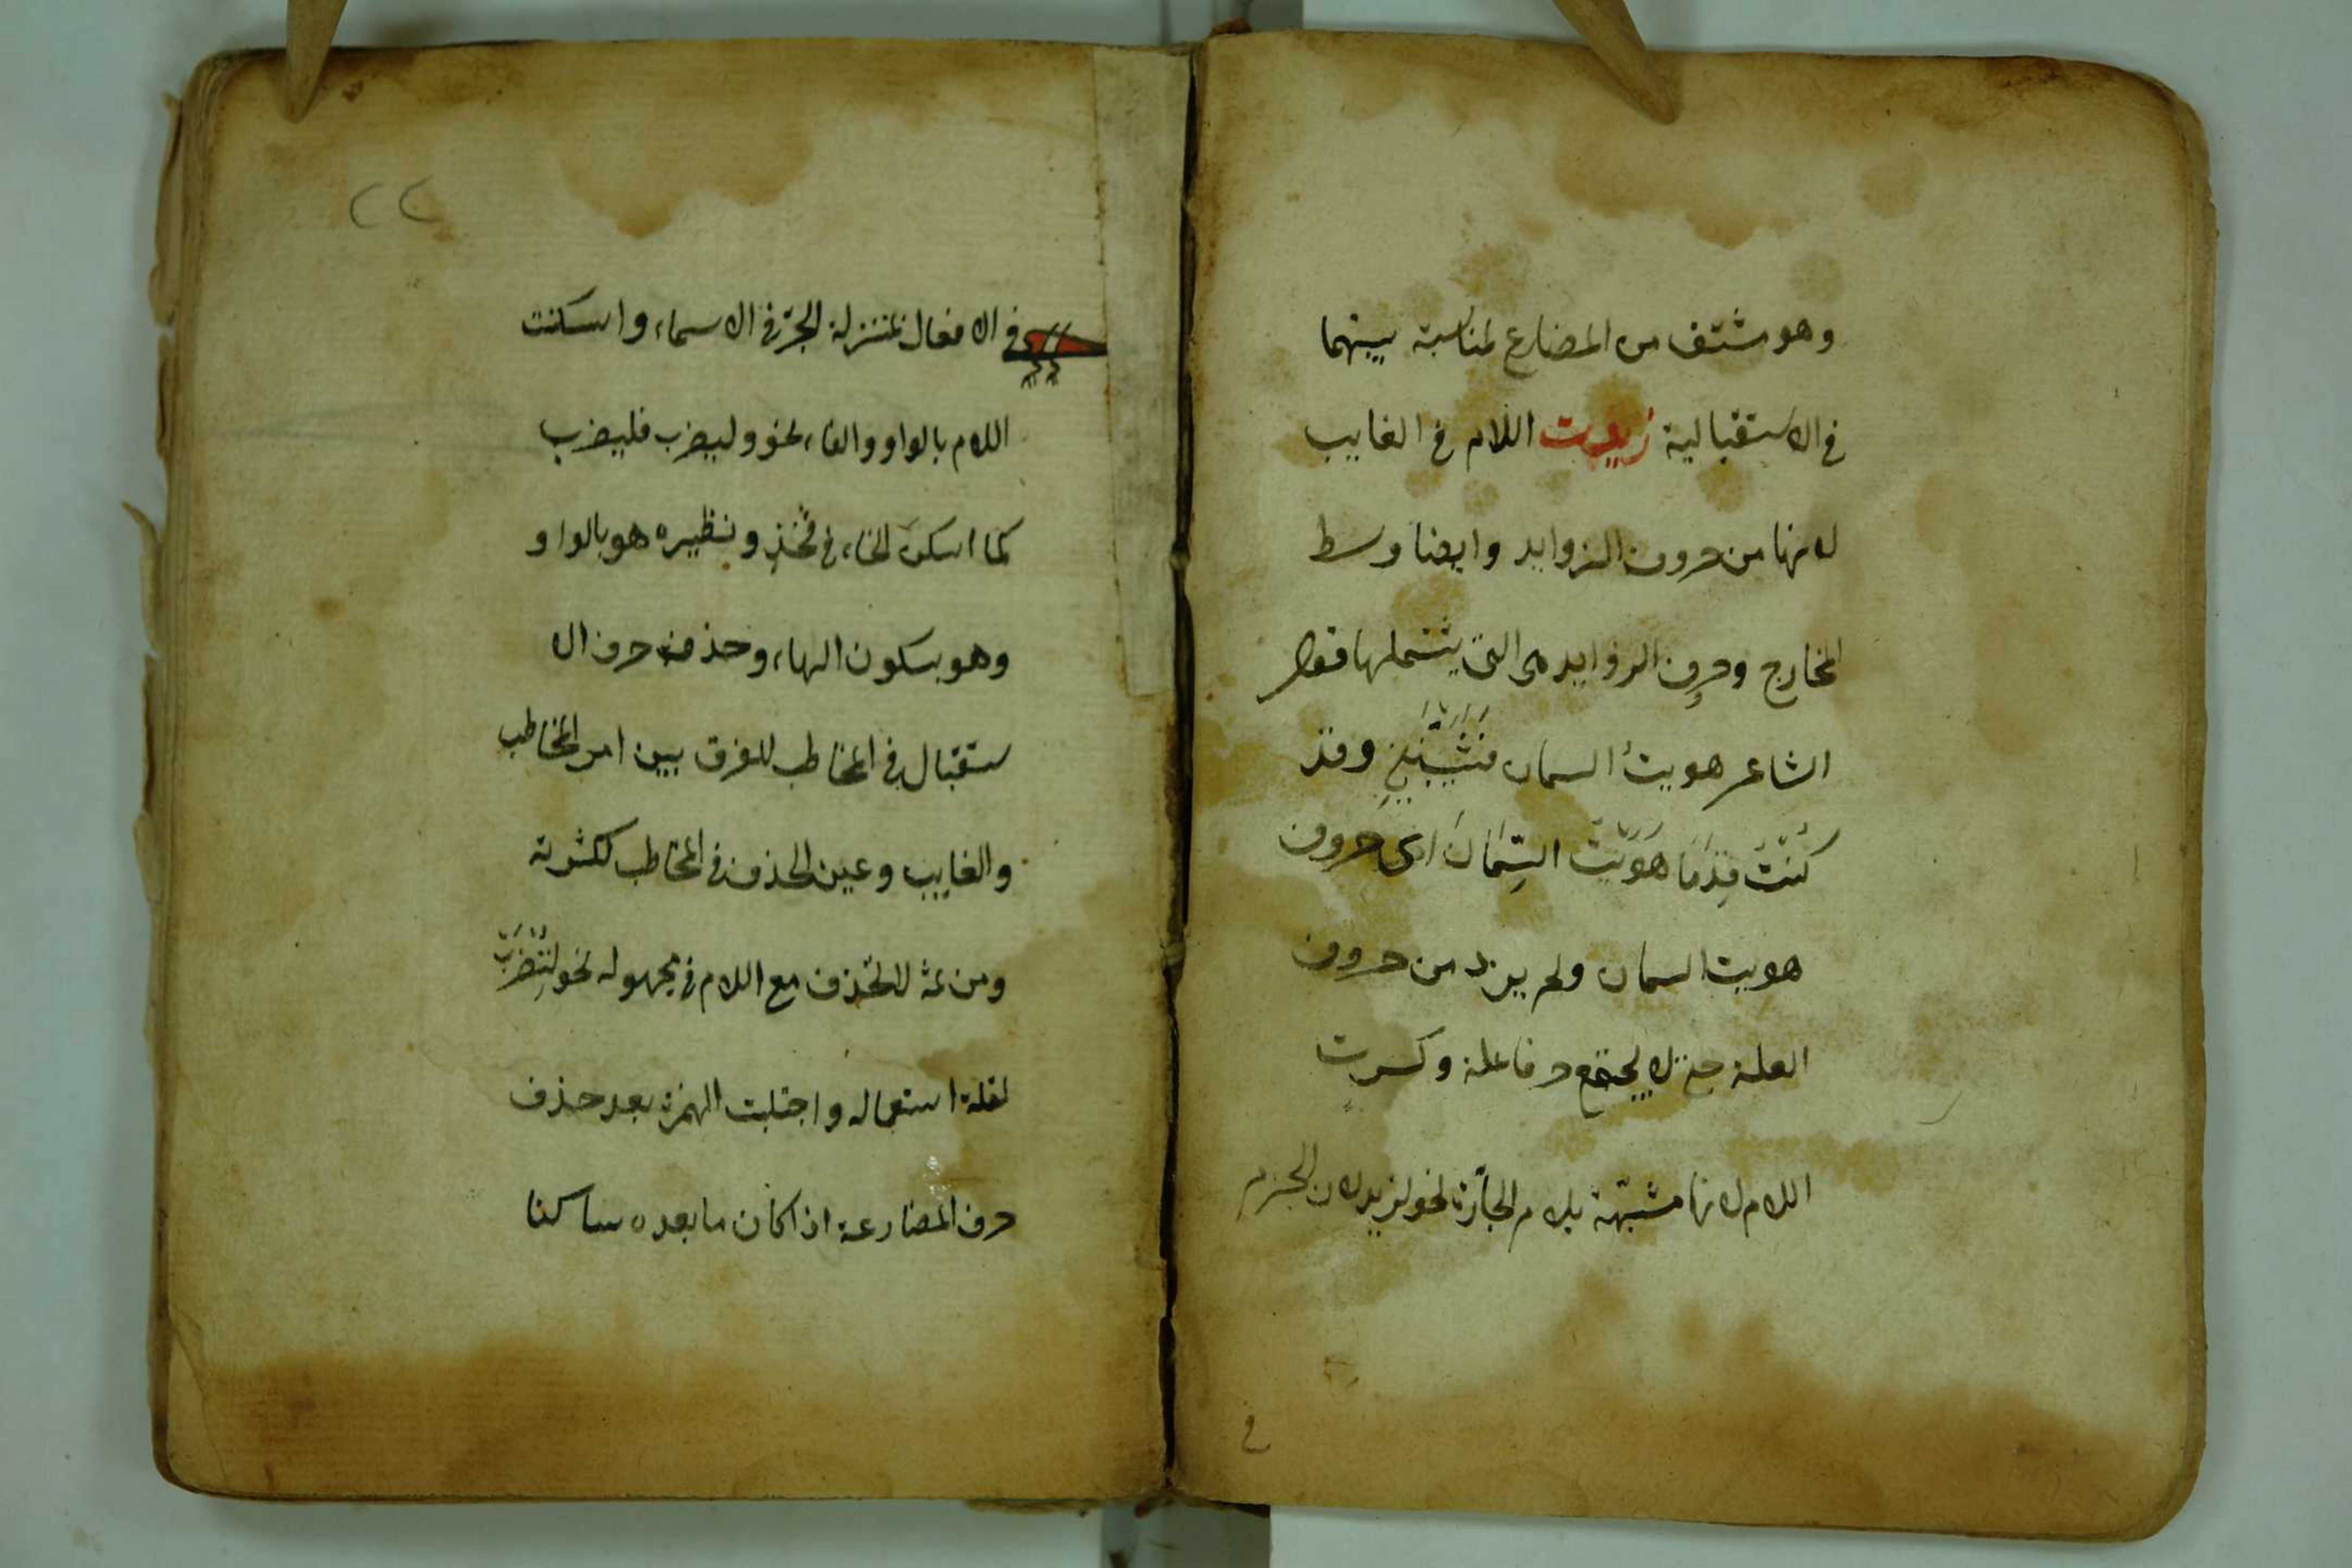 وهو مشتق من المضارع لمناسبة بينهما
في الاستقبالية زيدت اللام في الغايب
لانها من حروف الزوايد وايضا وسط
المخارج وحروف الزوايد هى التى يشتملها قول
الشاعر هويتُ السمان فشَيَّبْنَنِي وقد
كُنْتُ قِدْمًا هَوَيْتُ السِّمَانَ اى حروف
هويت السمان ولم يزد من حروف
العلة حتى لا يجتمع حرفا علة وكسرت
اللام لانها مشبّهة بلام الجارّة نحو لزيد لان الجزم
في
٢٢
في الافعال بمنزلة الجرّ في الاسماء واسكنت
اللام بالواو والفاء نحو وليضرب فليضرب
كما اسكن الخاء في فخذٍ ونظيره هو بالواو
وهو بسكون الهاء وحذفت حرف الا
ستقبال في المخاطب للفرق بين امر المخاطب
والغايب وعين الحذف في المخاطب لكثرته
ومن ثمه لا تحذف مع اللام في مجهوله نحو لِتُضْرَبْ
لقلة استعماله واجتلبت الهمزة بعد حذف
حرف المضارعة اذا كان ما بعده ساكنا